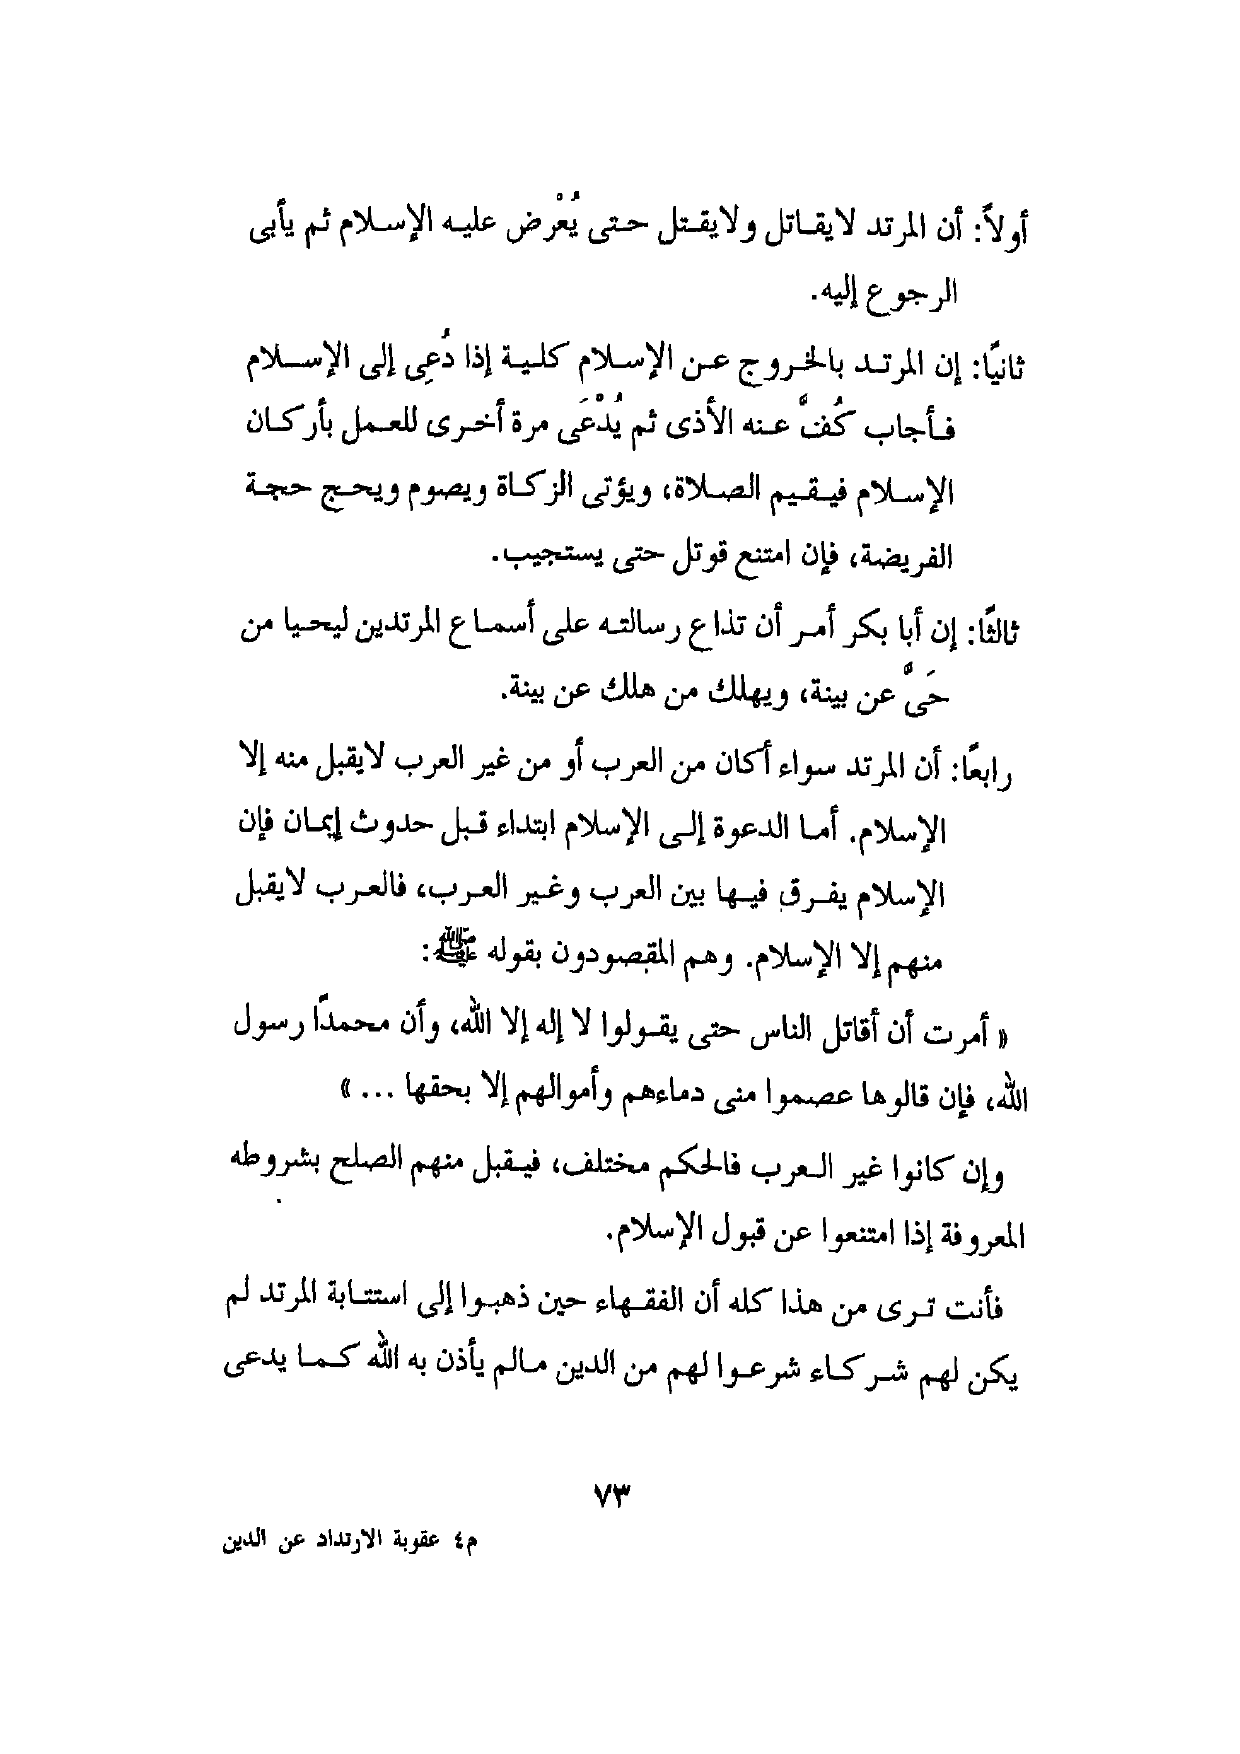 أولاً: أن المرتد لايقاتل ولايقتل حتى يُعْرض عليه الإسلام ثم يأبى
الرجوع إليه.
ثانيًا: إن المرتد بالخروج عن الإسلام كلية إذا دُعِى إلى الإسلام
فأجاب كُفَّ عنه الأذى ثم يُدْعَى مرة أخرى للعمل بأركان
الإسلام فيقيم الصلاة، ويؤتى الزكاة ويصوم ويحج حجة
الفريضة، فإن امتنع قوتل حتى يستجيب.
ثالثًا: إن أبا بكر أمر أن تذاع رسالته على أسماع المرتدين ليحيا من
حَىَّ عن بينة، ويهلك من هلك عن بينة.
رابعًا: أن المرتد سواء أكان من العرب أو من غير العرب لايقبل منه إلا
الإسلام. أما الدعوة إلى الإسلام ابتداء قبل حدوث إيمان فإن
الإسلام يفرق فيها بين العرب وغير العرب، فالعرب لايقبل
منهم إلا الإسلام. وهم المقصودون بقوله ﷺ:
« أمرت أن أقاتل الناس حتى يقولوا لا إله إلا الله، وأن محمدًا رسول
الله، فإن قالوها عصموا منى دماءهم وأموالهم إلا بحقها ... »
وإن كانوا غير العرب فالحكم مختلف، فيقبل منهم الصلح بشروطه
المعروفة إذا امتنعوا عن قبول الإسلام.
فأنت ترى من هذا كله أن الفقهاء حين ذهبوا إلى استتابة المرتد لم
يكن لهم شركاء شرعوا لهم من الدين مالم يأذن به الله كما يدعى
٧٣
م٤ عقوبة الارتداد عن الدين